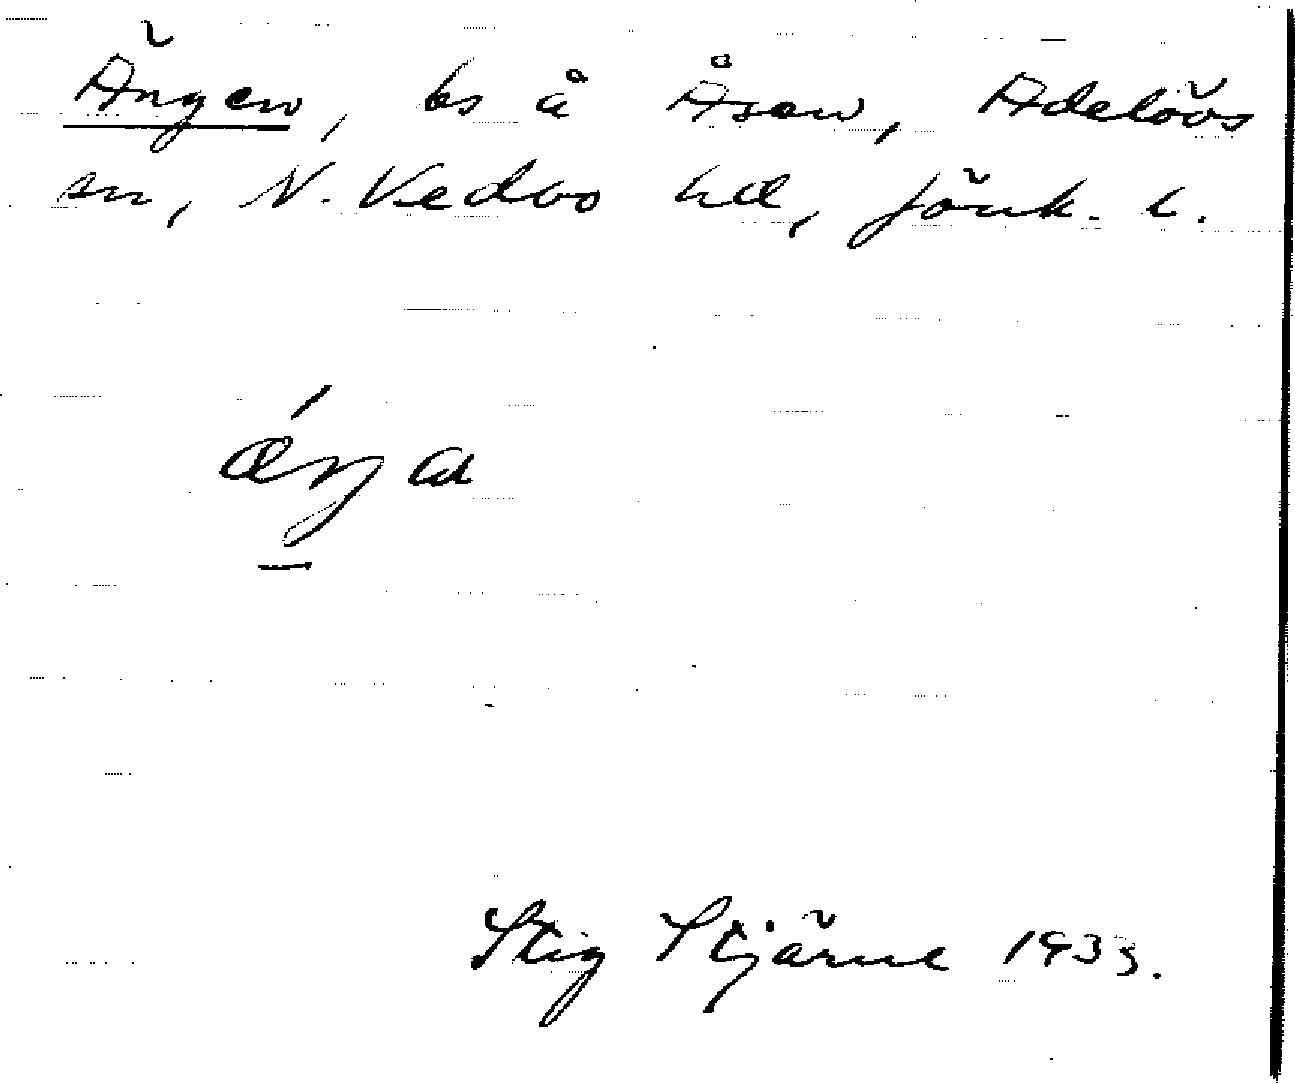 Ängen, bs å Åsen, Adelövs
sn, N. Vedbo hd, Jönk. l.
ǽŋa
Stig Stjärne 1933.